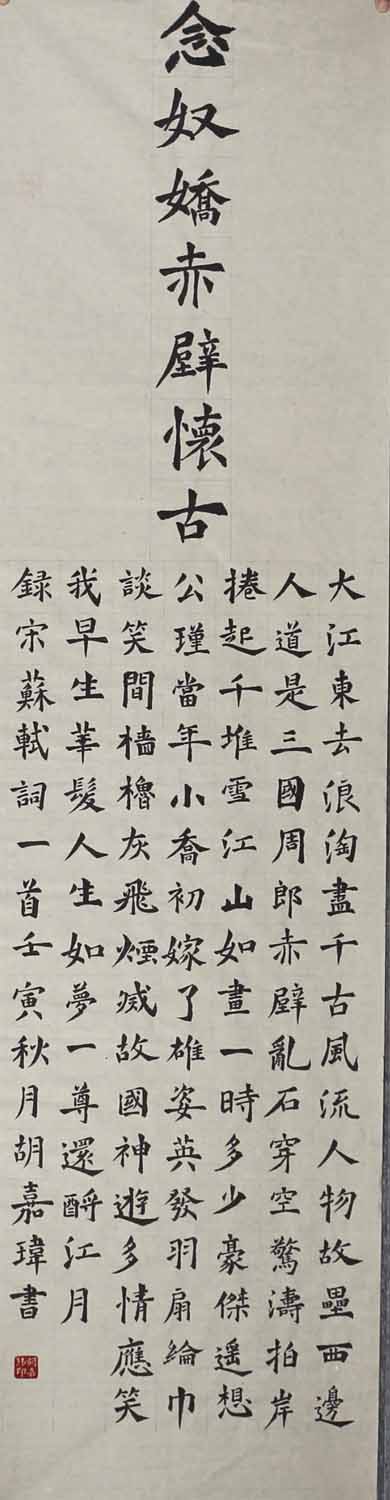 念奴嬌赤壁懷古
大江東去浪淘盡千古風流人物故壘西邊
人道是三國周郎赤壁亂石穿空驚濤拍岸
捲起千堆雪江山如畫一時多少豪傑遥想
公瑾當年小喬初嫁了雄姿英發羽扇綸巾
談笑間檣櫓灰飛煙滅故國神遊多情應笑
我早生華髮人生如夢一尊還酹江月
録宋蘇軾詞一首壬寅秋月胡嘉瑋書